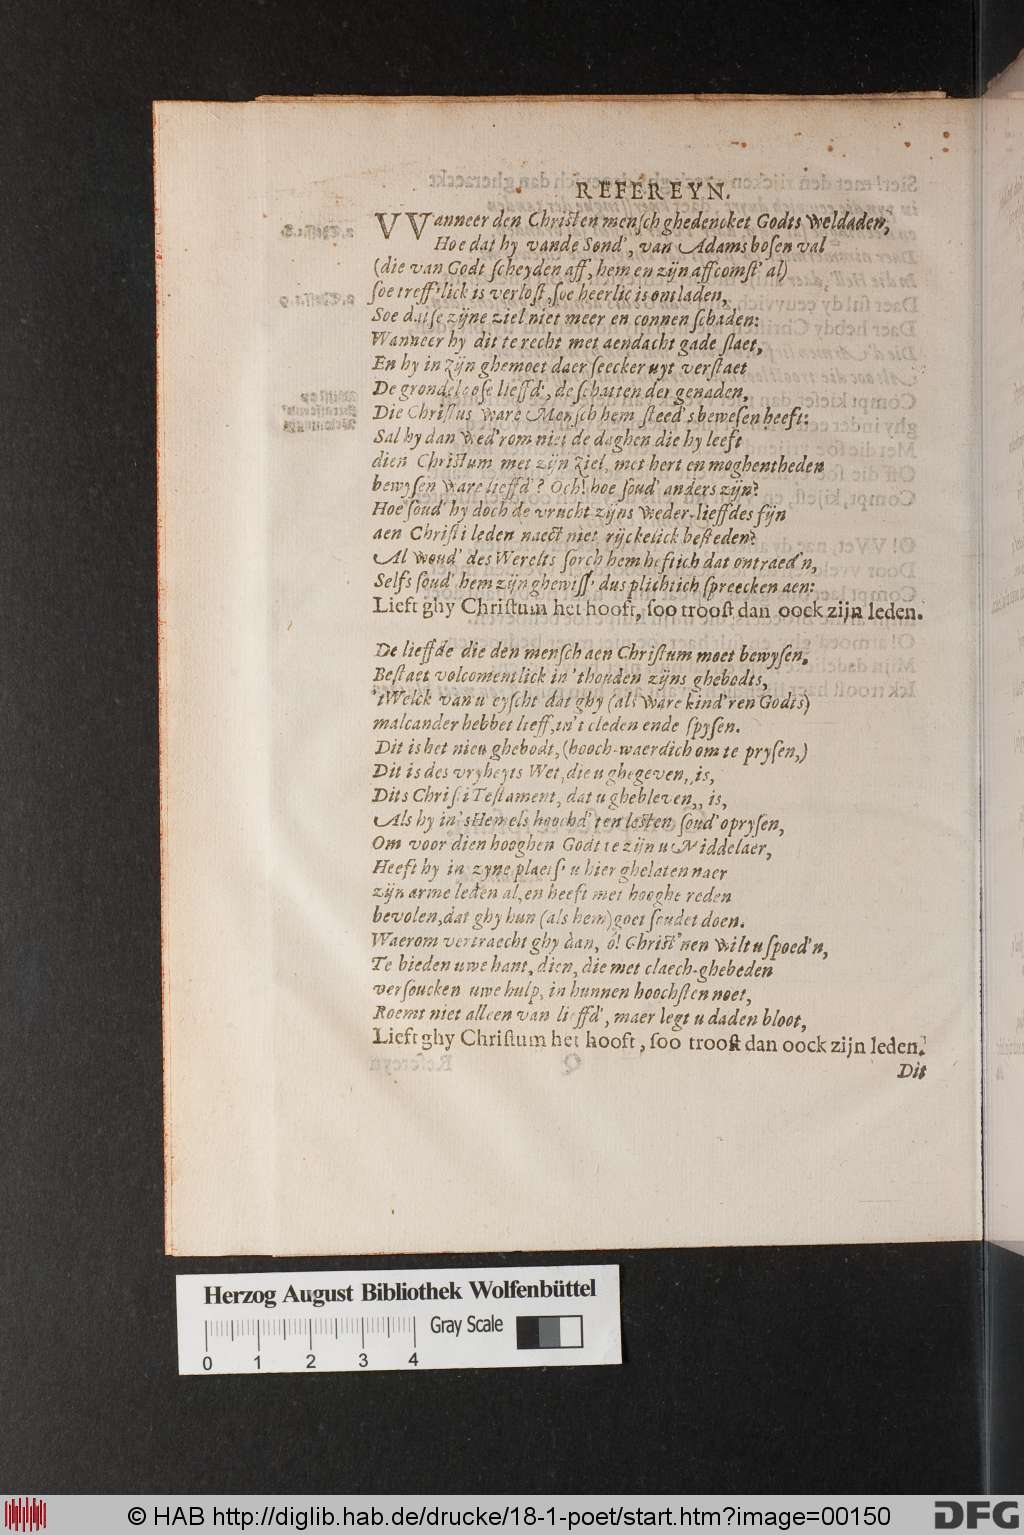 REFEREYN.
VVanneer den Christen mensch ghedencket Godts weldaden,
Hoe dat hy vande Sond', van Adams bosen val
(die van Godt scheyden aff, hem en zijn affcomst' al)
soe treff'lick is verlost, soe heerlic is ontladen,
Soe datse zijne ziel niet meer en connen schaden:
Wanneer hy dit te recht met aendacht gade slaet,
En hy in zijn ghemoet daer seecker uyt verstaet
De grondeloose lieffd', de schatten der genaden,
Die Christus ware Mensch hem steed's bewesen heeft:
Sal hy dan wed'rom niet de daghen die hy leeft
dien Christum met zijn ziel, met hert en moghentheden
bewysen ware lieffd'? Och! hoe soud' anders zijn?
Hoe soud' hy doch de vrucht zijns weder-lieffdes fijn
aen Christi leden naect niet rijckelick besteden?
Al woud' des Werelts sorch hem heftich dat ontraed'n,
Selfs soud' hem zijn ghewiss' dus plichtich spreecken aen:
Lieft ghy Christum het hooft, soo troost dan oock zijn leden.
De lieffde die den mensch aen Christum moet bewysen,
Bestaet volcomentlick in 't houden zijns ghebodts,
'tWelck van u eyscht dat ghy (als ware kind'ren Godts)
malcander hebbet lieff, in 't cleden ende spysen.
Dit is het nieu ghebodt, (hooch-waerdich om te prysen,)
Dit is des vryheyts Wet, die u ghegeven,, is,
Dits Christi Testament, dat u ghebleven,, is,
Als hy in 'sHemels hoochd' ten lesten soud' oprysen,
Om voor dien hooghen Godt te zijn u Middelaer,
Heeft hy in zyne plaets' u hier ghelaten naer
zijn arme leden al, en heeft met hooghe reden
bevolen, dat ghy hun (als hem) goet soudet doen.
Waerom vertraecht ghy dan, ó! Christ'nen wilt u spoed'n,
Te bieden uwe hant, dien, die met claech-ghebeden
versoucken uwe hulp, in hunnen hoochsten noet,
Roemt niet alleen van lieffd', maer legt u daden bloot,
Lieft ghy Christum het hooft, soo troost dan oock zijn leden.
Dit
Herzog August Bibliothek Wolfenbüttel
Gray Scale
0 1 2 3 4
© HAB http://diglib.hab.de/drucke/18-1-poet/start.htm?image=00150
DFG